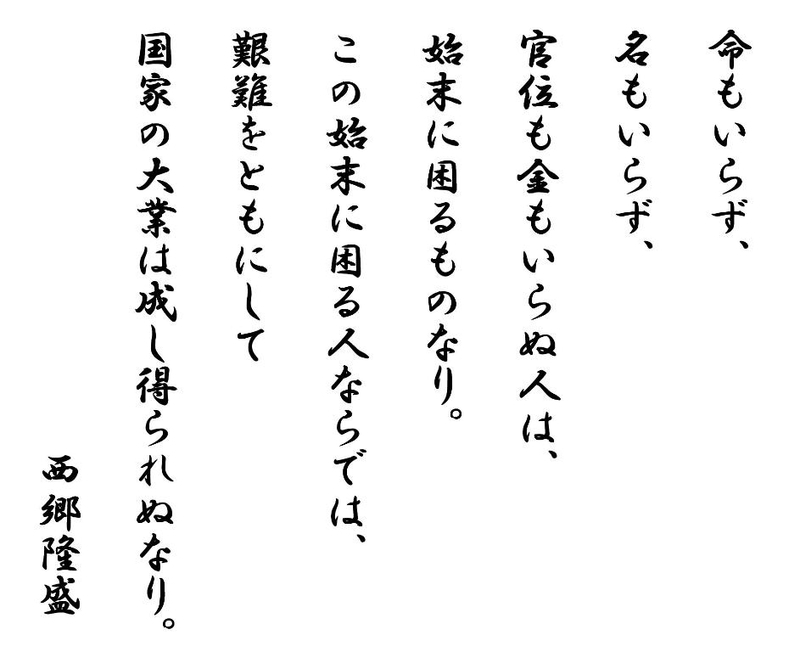 命もいらず、
名もいらず、
官位も金もいらぬ人は、
始末に困るものなり。
この始末に困る人ならでは、
艱難をともにして
国家の大業は成し得られぬなり。
西郷隆盛